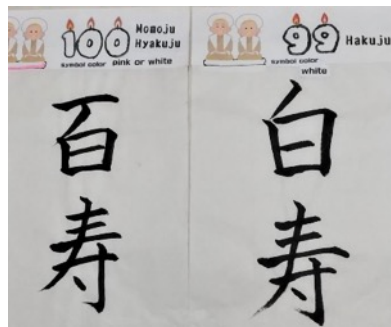 100
Momoju
Hyakuju
symbol color pink or white
百寿
99
Hakuju
symbol color
white
白寿